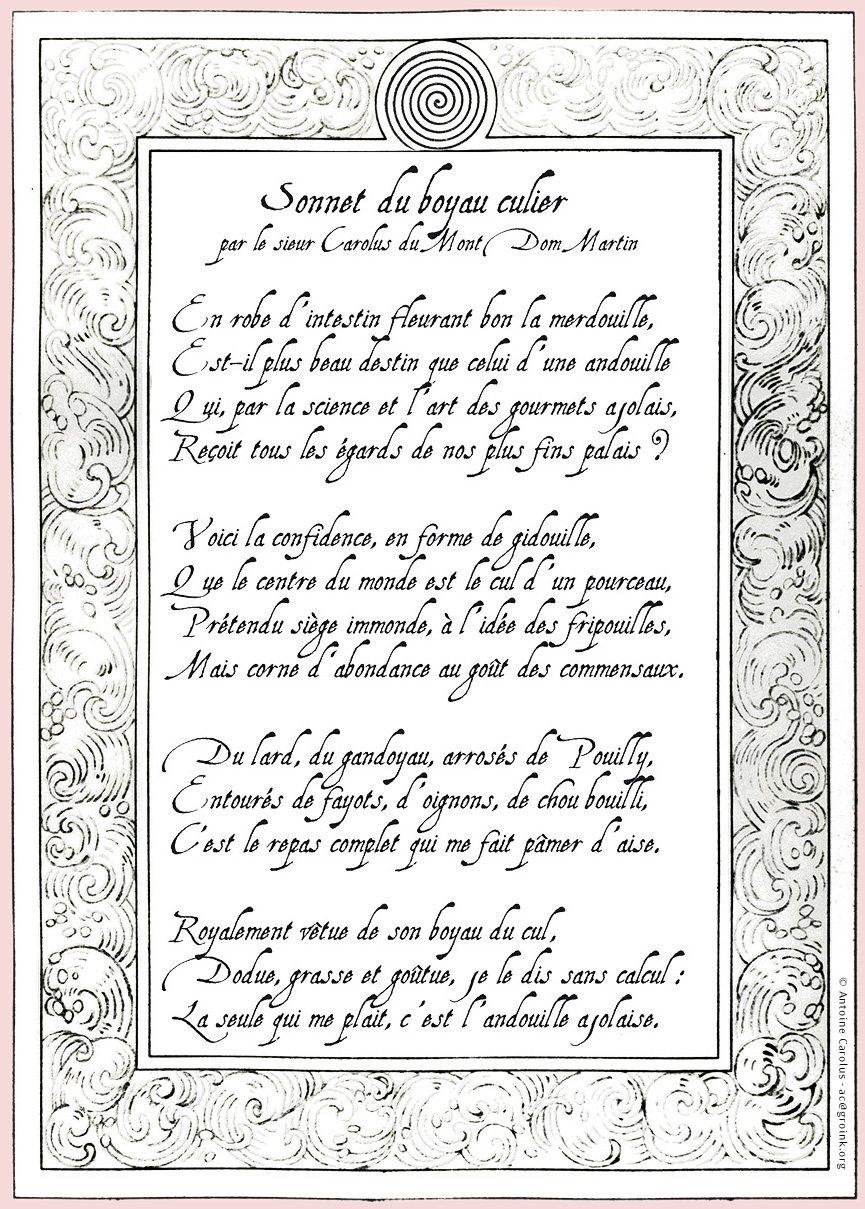 Sonnet du boyau culier
par le sieur Carolus du Mont Dom Martin
En robe d'intestin fleurant bon la merdouille,
Est-il plus beau destin que celui d'une andouille
Qui, par la science et l'art des gourmets ajolais,
Reçoit tous les égards de nos plus fins palais ?
Voici la confidence, en forme de gidouille,
Que le centre du monde est le cul d'un pourceau,
Prétendu siège immonde, à l'idée des fripouilles,
Mais corne d'abondance au goût des commensaux.
Du lard, du gandoyau, arrosés de Pouilly,
Entourés de fayots, d'oignons, de chou bouilli,
C'est le repas complet qui me fait pâmer d'aise.
Royalement vêtue de son boyau du cul,
Dodue, grasse et goûtue, je le dis sans calcul :
La seule qui me plait, c'est l'andouille ajolaise.
© Antoine Carolus - ac@groink.org